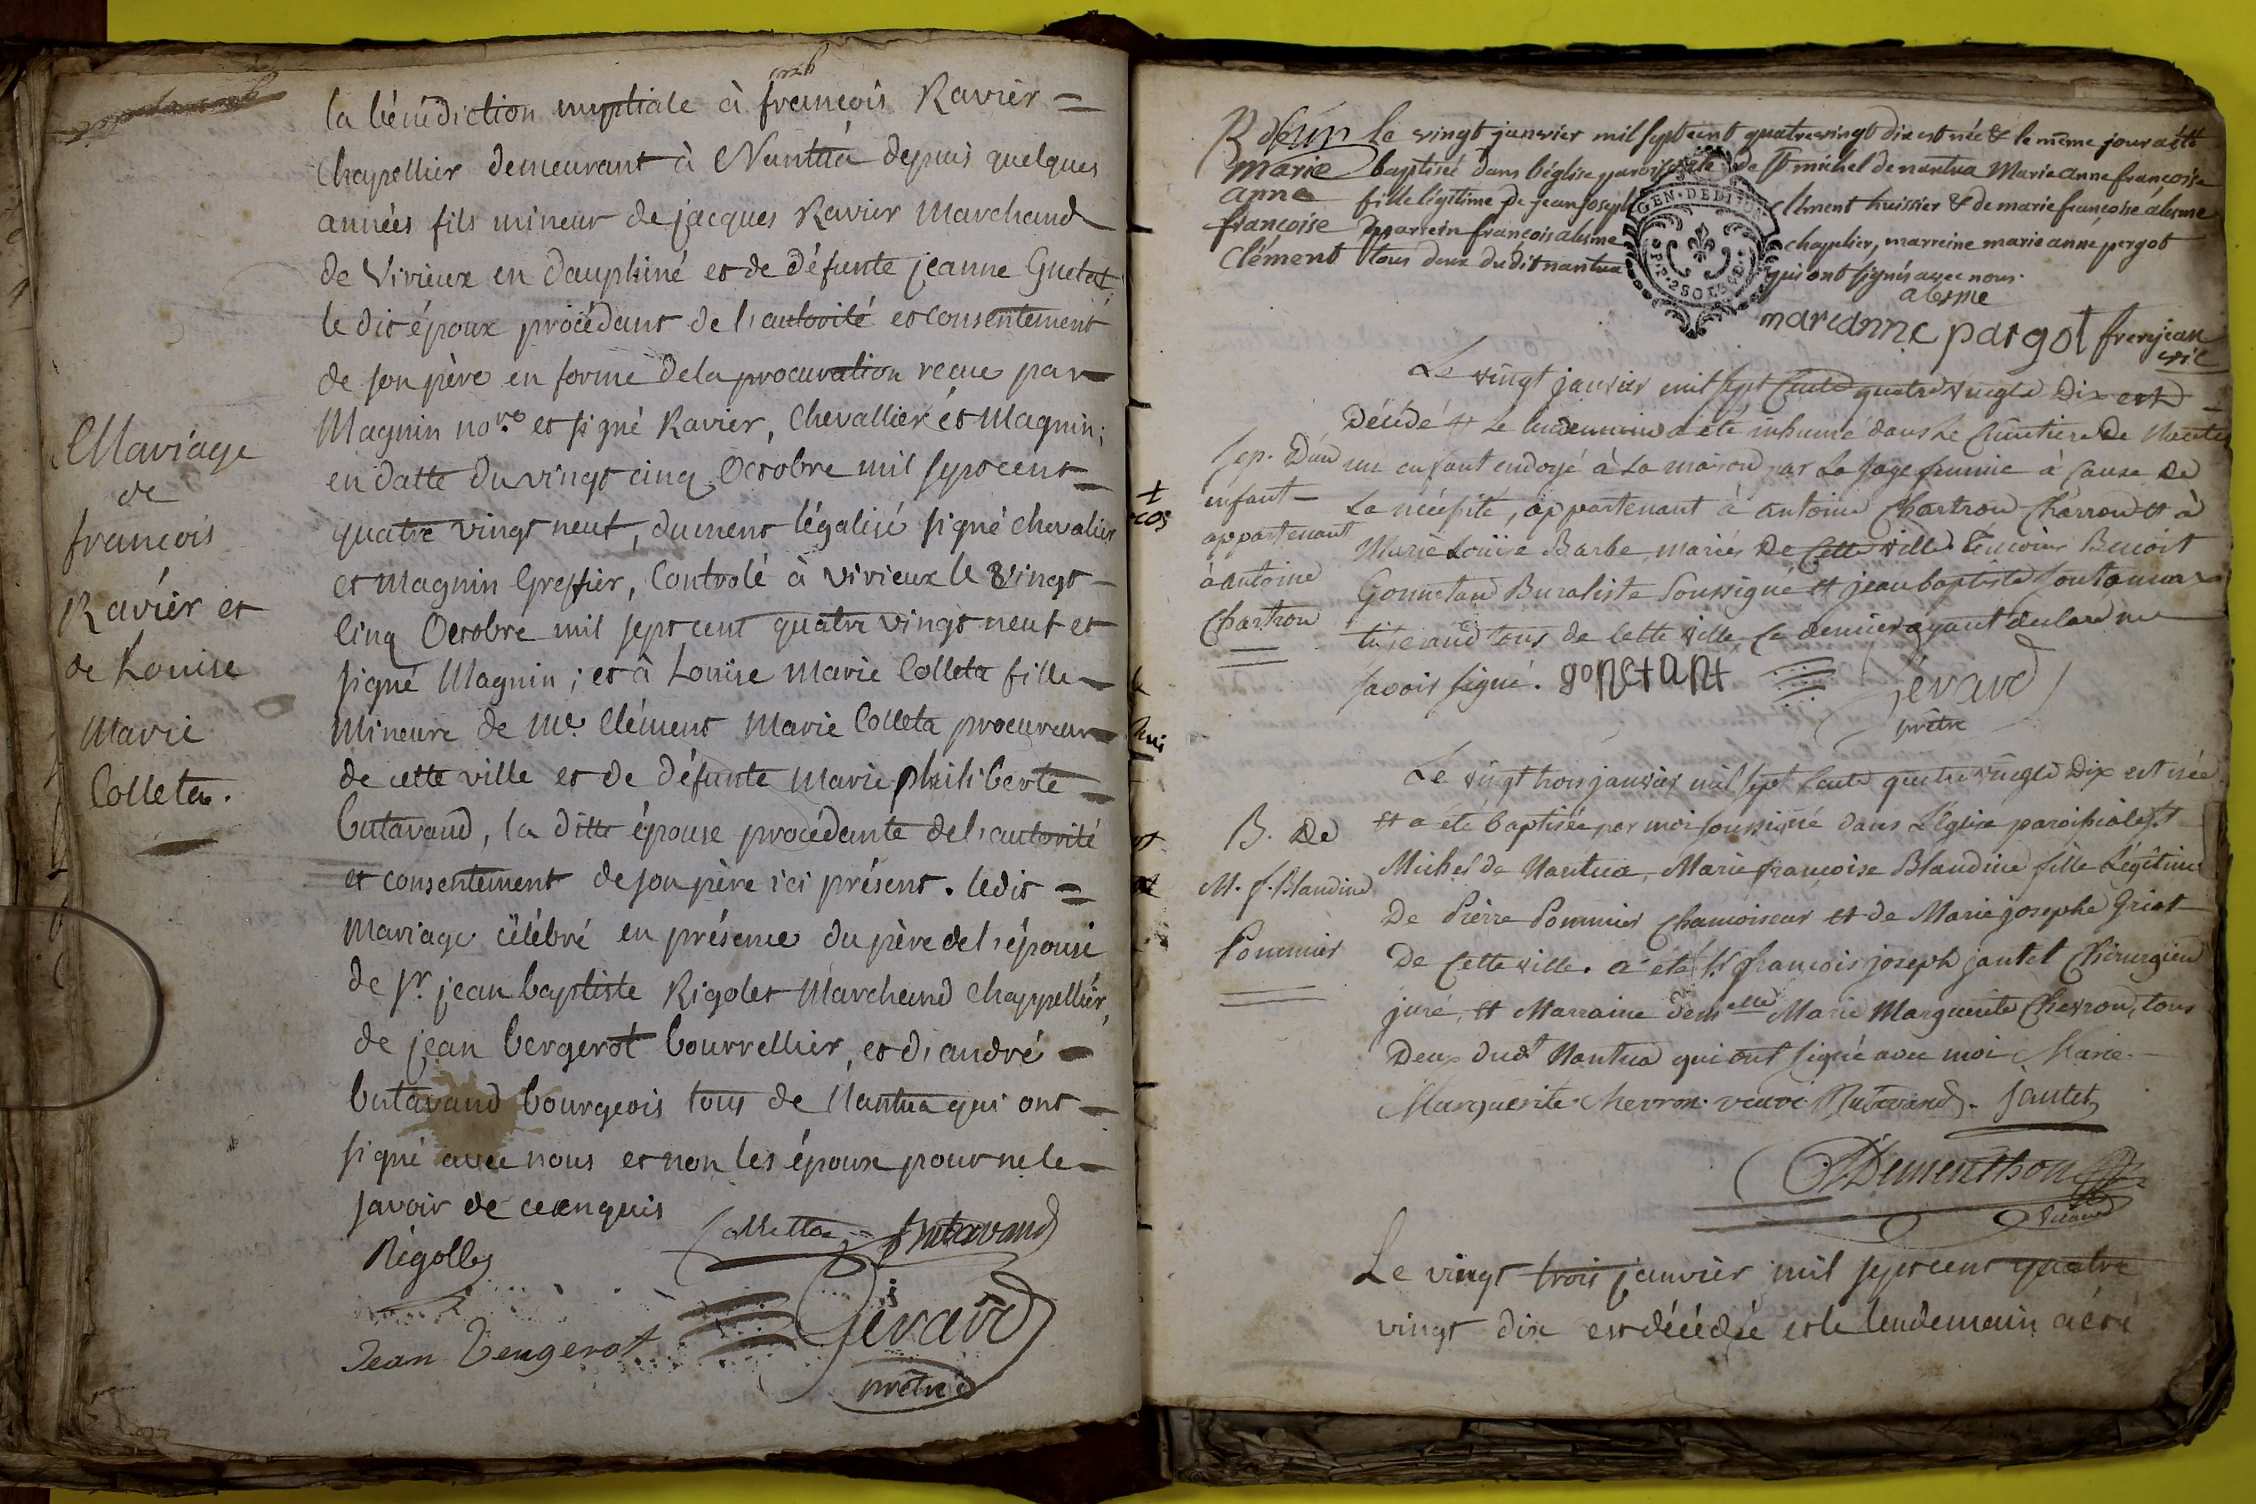 Mariage
de
françois
Ravier et
de Louise
Marie
Colleta.
la bénédiction nuptiale à françois Ravier =
Chapellier demeurant à Nantua depuis quelques
années fils mineur de jacques Ravier Marchand
de Virieux en dauphiné et de défunte jeanne Guetat,
le dit époux procédant de l'autorité et consentement
de son père en forme de la procuration recue par
Magnin nore et signé Ravier, Chevallier et Magnin;
en datte du vingt cinq Octobre mil sept cent
quatre vingt neuf, dument légalisé signé chevalier
et Magnin Greffier, Controlé à virieux le Vingt
cinq Octobre mil sept cent quatre vingt neuf et
signé Magnin; et à Louise Marie Colleta fille
Mineure de Me. Clément Marie Colleta procureur
de cette ville et de défunte Marie philiberte
butavand, la ditte épouse procédante de l'autorité
et consentement de son père ici présent. ledit =
Mariage célébré en présence du père de l'épouse
de sr. jean baptiste Rigolet Marchand Chappellier,
de jean bergerot bourrellier, et d'andré
butavand bourgeois tous de Nantua qui ont
signé avec nous et non les époux pour ne le
savoir de ce enquis
Rigollet
Colletta
Butavand
Jean bergerot
Gérard
prêtre
B d'un
marie
anne
françoise
Clément
le vingt janvier mil sept cent quatrevingt dix est née & le même jour a été
baptisée dans l'église paroissiale de St michel de nantua Marie anne françoise
fille légitime de jean joseph Clément huissier & de marie françoise alesme
parrein françois alesme chaplier, marreine marie anne pergot
tous deux dudit nantua qui ont signés avec nous.
GEN. DE DIJON
2 SOLS
alesme
marianne pargot frerejean
vic
Sep. D'un
enfant
appartenant
à antoine
Chartron
Le vingt janvier mil sept Cents quatre vingts Dix est
Décédé et Le lendemain a été inhumé dans Le Cimetiere De Nantua
un enfant endoyé à La maison par La sage femme à Cause De
La nécessité, appartenant à antoine Chartron Charron et à
Marie Louise Barbe mariés De Cette ville. témoins Benoit
Gonnetand Buraliste Soussigné et jean baptiste
tisserand tous de Cette ville, Ce dernier ayant déclaré ne
savoir signé. gonetant
Gérard
prêtre
B. De
M. f. Blandine
Pommier
Le vingt trois janvier mil sept Cents quatre vingts Dix est née
et a été baptisée par moi soussigné dans L'église paroissiale St
Michel de Nantua, Marie françoise Blandine fille Légitime
De Pierre Pommier Chamoiseur et de Marie josephe Griot
De Cette ville. a été Sr françois joseph jantet Chirurgien
juré, et Marraine demelle Marie Marguerite Chevron, tous
Deux dudt Nantua qui ont signé avec moi Marie
Marguerite Chevron veuve Butavand. jantet
Dementhon
vicaire
Le vingt trois janvier mil sept cent quatre
vingt dix est décédée et le lendemain a été